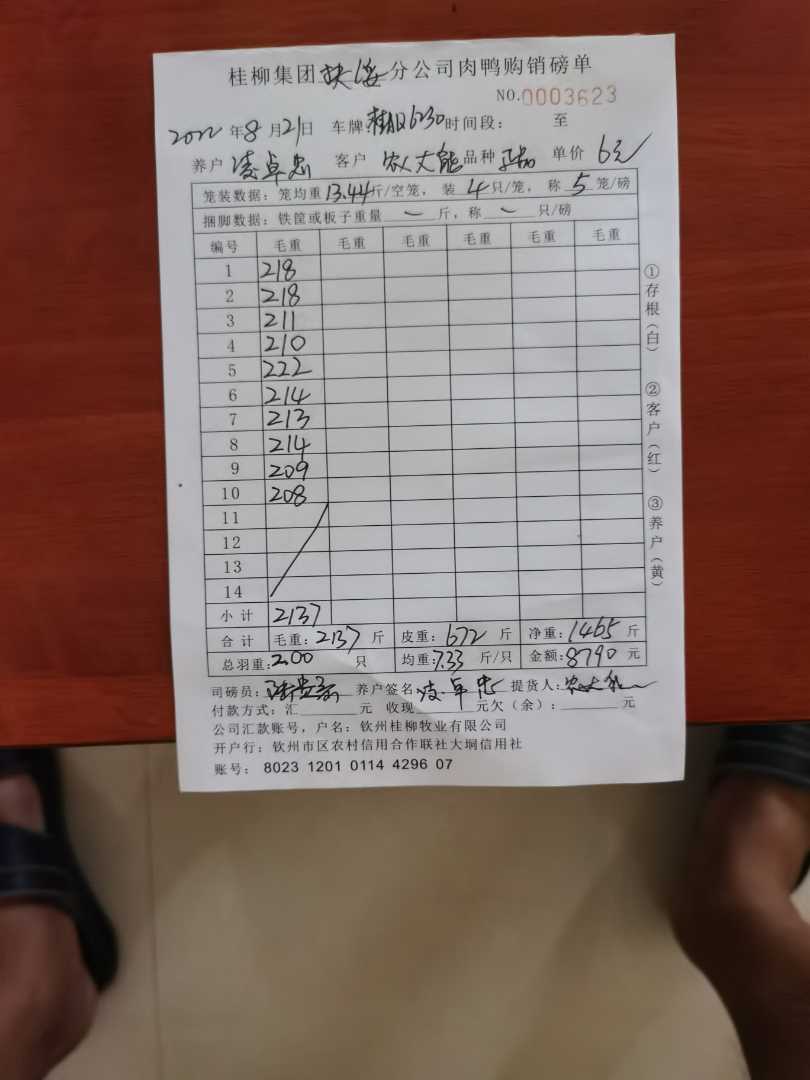 桂柳集团扶绥分公司肉鸭购销磅单
NO.0003623
2022年8月21日 车牌桂 6230时间段： 至
养户凌卓忠 客户农大能品种正品 单价6元
笼装数据：笼均重13.44斤/空笼，装4只/笼，称5笼/磅
捆脚数据：铁筐或板子重量－斤，称－只/磅
编号 毛重 毛重 毛重 毛重 毛重 毛重
1 218
2 218
3 211
4 210
5 222
6 214
7 213
8 214
9 209
10 208
11
12
13
14
小计 2137
合计 毛重：2137斤 皮重：672斤 净重：1465斤
总羽重：200只 均重：7.33斤/只 金额：8790元
司磅员： 养户签名凌卓忠 提货人：农大能
付款方式：汇______元 收现______元欠（余）：______元
公司汇款账号，户名：钦州桂柳牧业有限公司
开户行：钦州市区农村信用合作联社大垌信用社
账号： 8023 1201 0114 4296 07
①存根（白）
②客户（红）
③养户（黄）